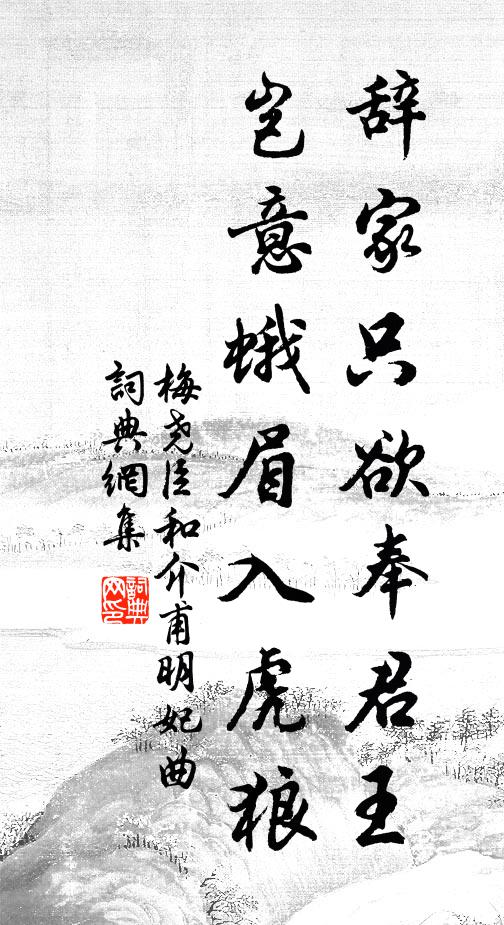 辞家只欲奉君王
岂意蛾眉入虎狼
梅尧臣和介甫明妃曲
詞典網集
詞典
网印